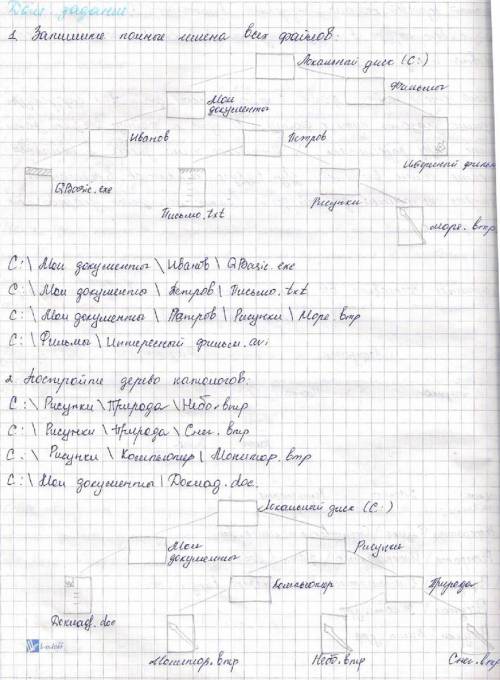 Дом. задание.
1. Запишите полные имена всех файлов:
Локальный диск (C:)
Фильмы
Мои
документы
Иванов
Петров
QBasic.exe
Письмо.txt
Рисунки
Море.bmp
C:\ Мои документы \ Иванов \ QBasic.exe
C:\ Мои документы \ Петров \ Письмо.txt
C:\ Мои документы \ Петров \ Рисунки \ Море.bmp
C:\ Фильмы \ Интересный фильм.avi
2. Постройте дерево каталогов:
C:\ Рисунки \ Природа \ Небо.bmp
C:\ Рисунки \ Природа \ Снег.bmp
C:\ Рисунки \ Компьютер \ Монитор.bmp
C:\ Мои документы \ Доклад.doc.
Локальный диск (C:)
Мои
документы
Рисунки
Компьютер
Природа
Доклад.doc
Монитор.bmp
Небо.bmp
Снег.bmp